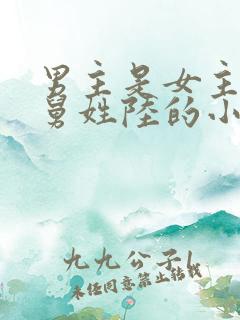 男主是女主
舅姓陸的小
九九公子/
未经同意禁止转载